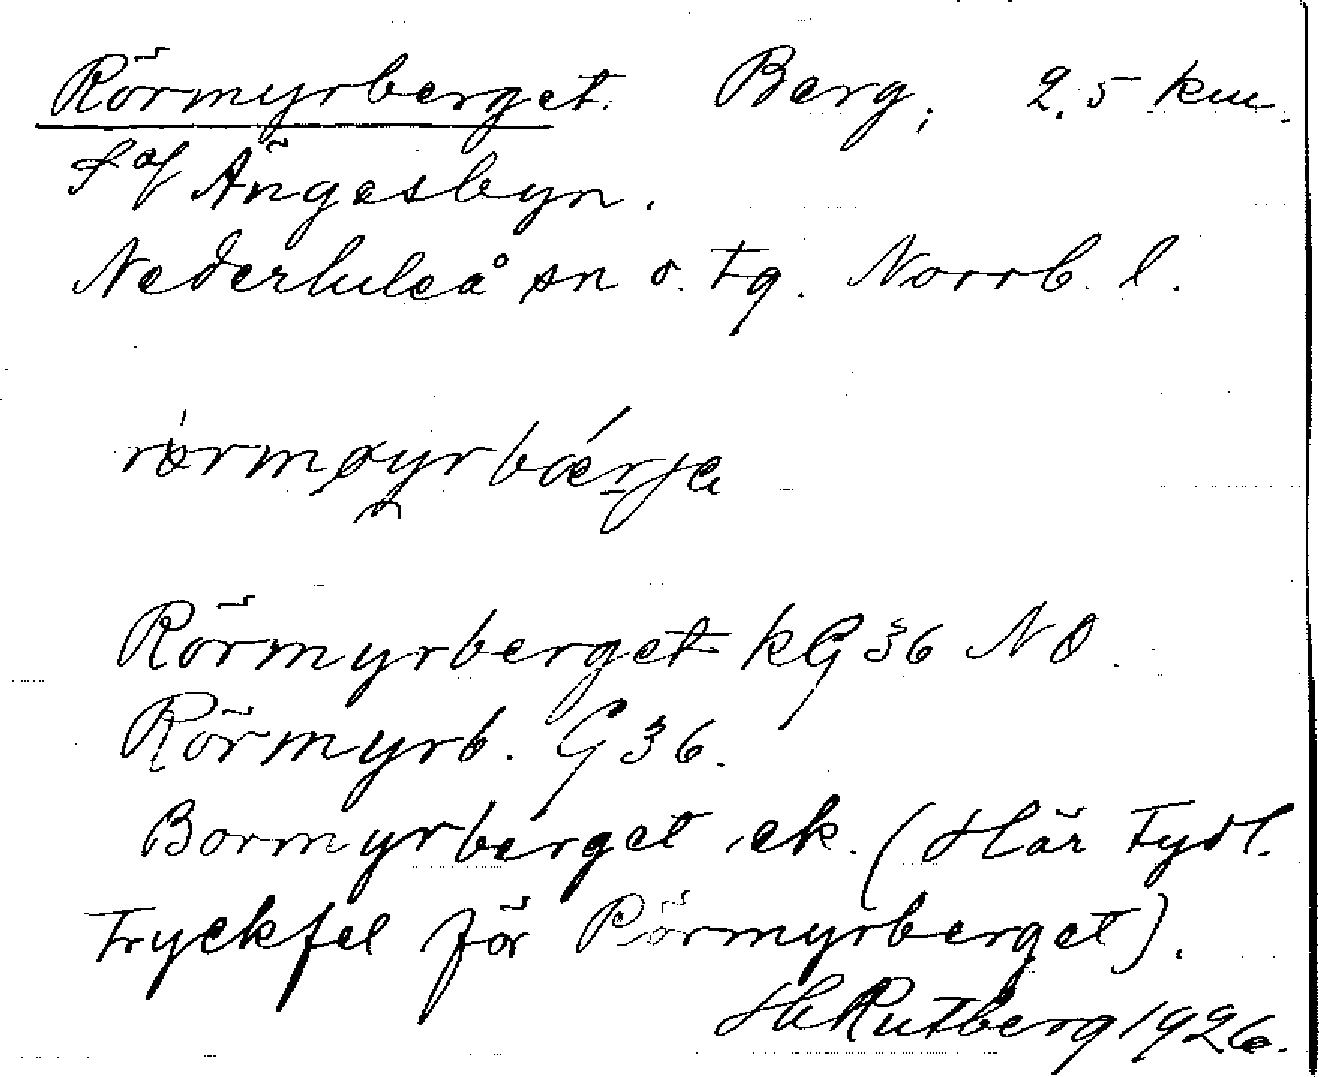 Rörmyrberget. Berg, 2,5 km.
S of Ängesbyn.
Nederluleå sn o. tg. Norrb. l.
Rörmyrberget kG 36 NO.
Rörmyrb. G 36.
Bormyrberget ek. (Här tydl.
tryckfel för Rörmyrberget).
H Rutberg 1926.